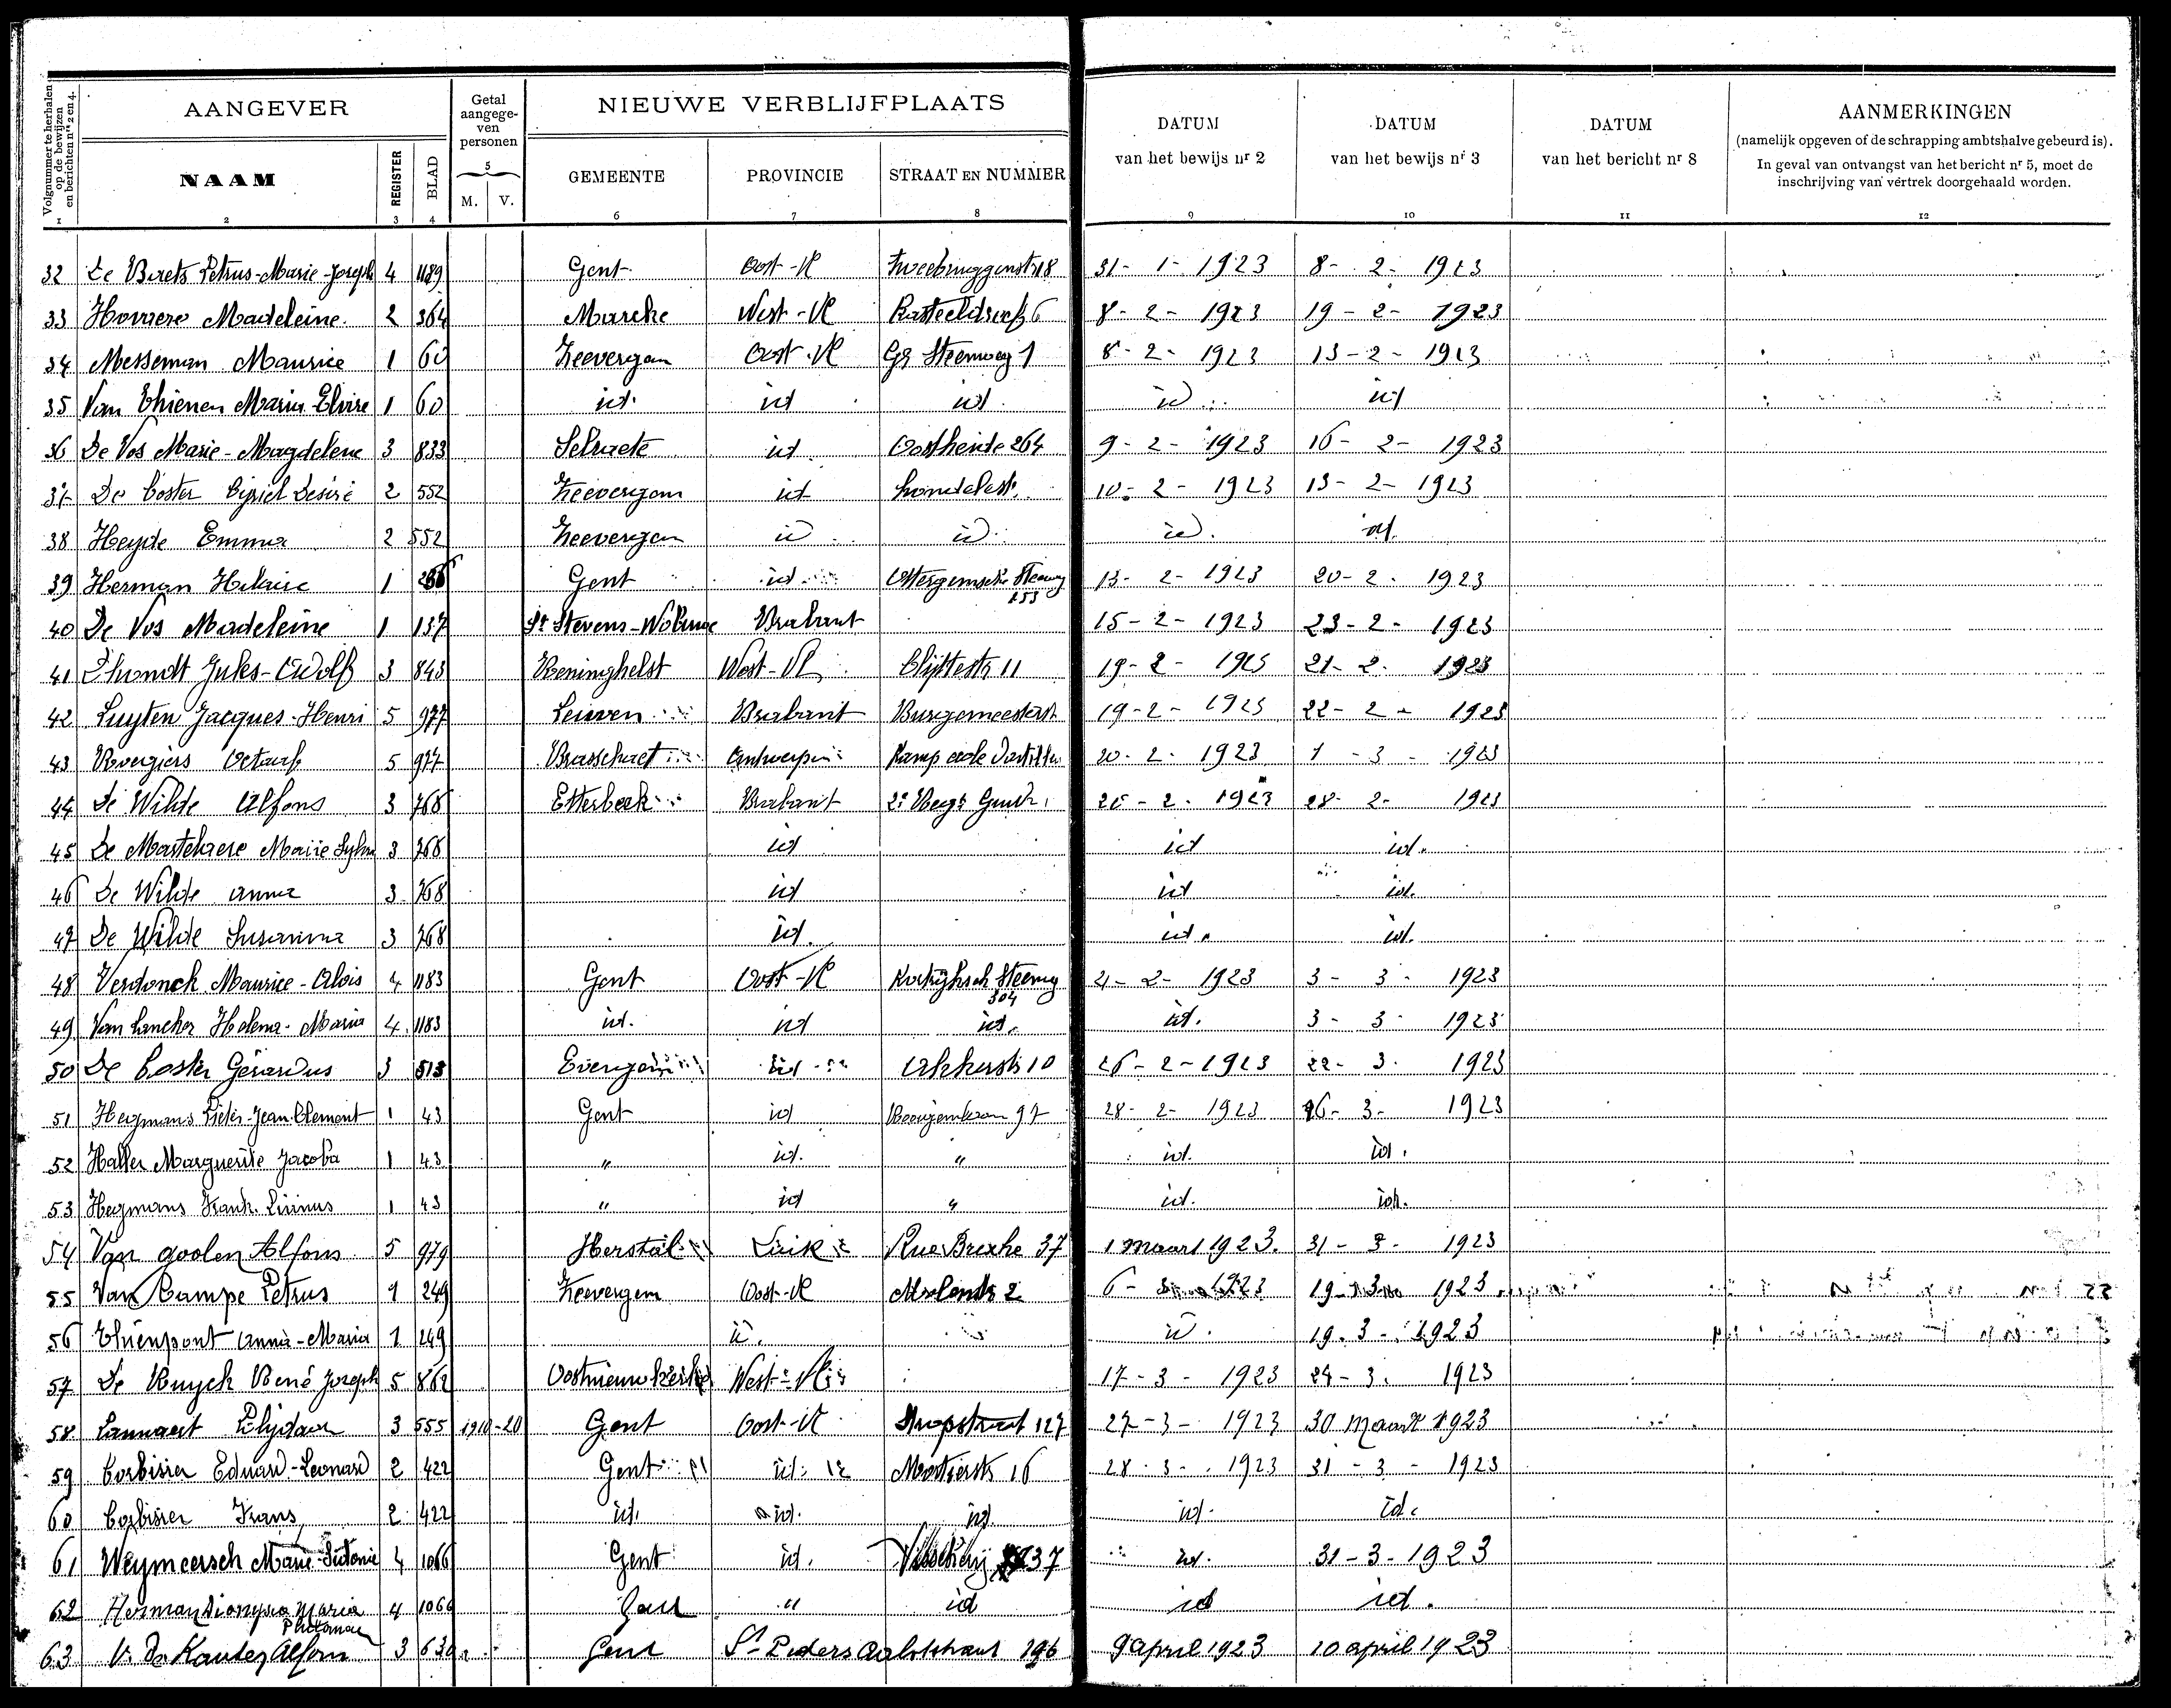 Volgnummer te herhalen op de bewijzen en berichten nrs 2 en 4.
AANGEVER
Getal aangegeven personen
NIEUWE VERBLIJFPLAATS
DATUM van het bewijs nr 2
DATUM van het bewijs nr 3
DATUM van het bericht nr 8
AANMERKINGEN
(namelijk opgeven of de schrapping ambtshalve gebeurd is).
In geval van ontvangst van het bericht nr 5, moet de
inschrijving van vertrek doorgehaald worden.
NAAM REGISTER BLAD 5 M. V. GEMEENTE PROVINCIE STRAAT EN NUMMER
1 2 3 4 6 7 8 9 10 11 12
32 Petrus-Marie-Joseph 4 1189 Gent Oost-Vl 31-1-1923 8-2-1923
33 Madeleine 2 364 Marcke West-Vl 6 8-2-1923 19-2-1923
34 Messeman Maurice 1 60 Zevergem Oost-Vl Gr Steenweg 1 8-2-1923 13-2-1923
35 Van Thienen Maria Elvire 1 60 id. id id id id
36 De Vos Marie-Magdelene 3 833 Selzaete id. 264 9-2-1923 16-2-1923
37 De Coster Cyriel Desiré 2 552 Zeevergem id 10-2-1923 13-2-1923
38 Heyde Emma 2 552 Zeevergem id id id. id.
39 Herman Hilaire 1 Gent id Ottergemsche Steenweg 153 13-2-1923 20-2-1923
40 De Vos Madeleine 1 137 St Stevens-Woluwe Brabant 15-2-1923 23-2-1923
41 D'hondt Jules-Adolf 3 843 Reninghelst West-Vl Clijttestr 11 19-2-1923 21-2-1923
42 Luyten Jacques-Henri 5 977 Leuven Brabant Burgemeesterst 19-2-1923 22-2-1923
43 Rogiers Octaaf 5 977 Brasschaet Antwerpen Kamp 20-2-1923 1-3-1923
44 De Wilde Alfons 3 768 Etterbeek Brabant 2e Regt 1923 28-2-1923
45 De Marie 3 768 id id id.
46 De Wilde Anna 3 768 id id id.
47 De Wilde Susanna 3 768 id. id. id.
48 Verdonck Maurice-Alois 4 1183 Gent Oost-Vl Steenweg 304 2-1923 3-3-1923
49 Van Lancker Helena-Maria 4 1183 id. id id. id. 3-3-1923
50 De Coster Gerardus 3 513 Evergem id 10 26-2-1923 22-3-1923
51 Hegmans Pieter-Jean-Clement 1 43 Gent id 97 28-2-1923 16-3-1923
52 Haller Marguerite Jacoba 1 43 " id. " id. id.
53 Hegmans Frank 1 43 " id " id. id.
54 Van goolen Alfons 5 979 Herstal Luik Rue Brexhe 37 1 maart 1923. 31-3-1923
55 Van Campe Petrus 1 249 Zeevergem Oost-Vl Molenstr 2 6-3-1923 19-3-1923
56 Thienpont Anna-Maria 1 249 id. id. 19-3-1923
57 De Ruyck René Joseph 5 862 Oostnieuwkerke West-Vl 17-3-1923 24-3-1923
58 Lannaert 3 555 1910-20 Gent Oost-Vl Stropstraat 127 27-3-1923 30 maart 1923
59 Corbisier Eduard-Leonard 2 422 Gent id. Mortierstr 16 28-3-1923 31-3-1923
60 Corbisier Frans 2 422 id. id. id id. id.
61 Weymeersch Marie 4 1066 Gent id. Visscherij 37 id. 31-3-1923
62 Herman Maria Philomena 4 1066 Gent " id id id.
63 V. De Kauter Alfons 3 630 Gent St Pieters Aalststraat 196 9 april 1923 10 april 1923